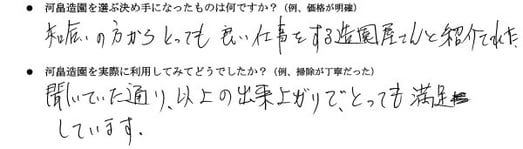 ● 河畠造園を選ぶ決め手になったものは何ですか？（例、価格が明確）
知り合いの方からとっても良い仕事をする造園屋さんと紹介てれた
● 河畠造園を実際に利用してみてどうでしたか？（例、掃除が丁寧だった）
聞いていた通り、以上の出来上がりで、とっても満足
しています。